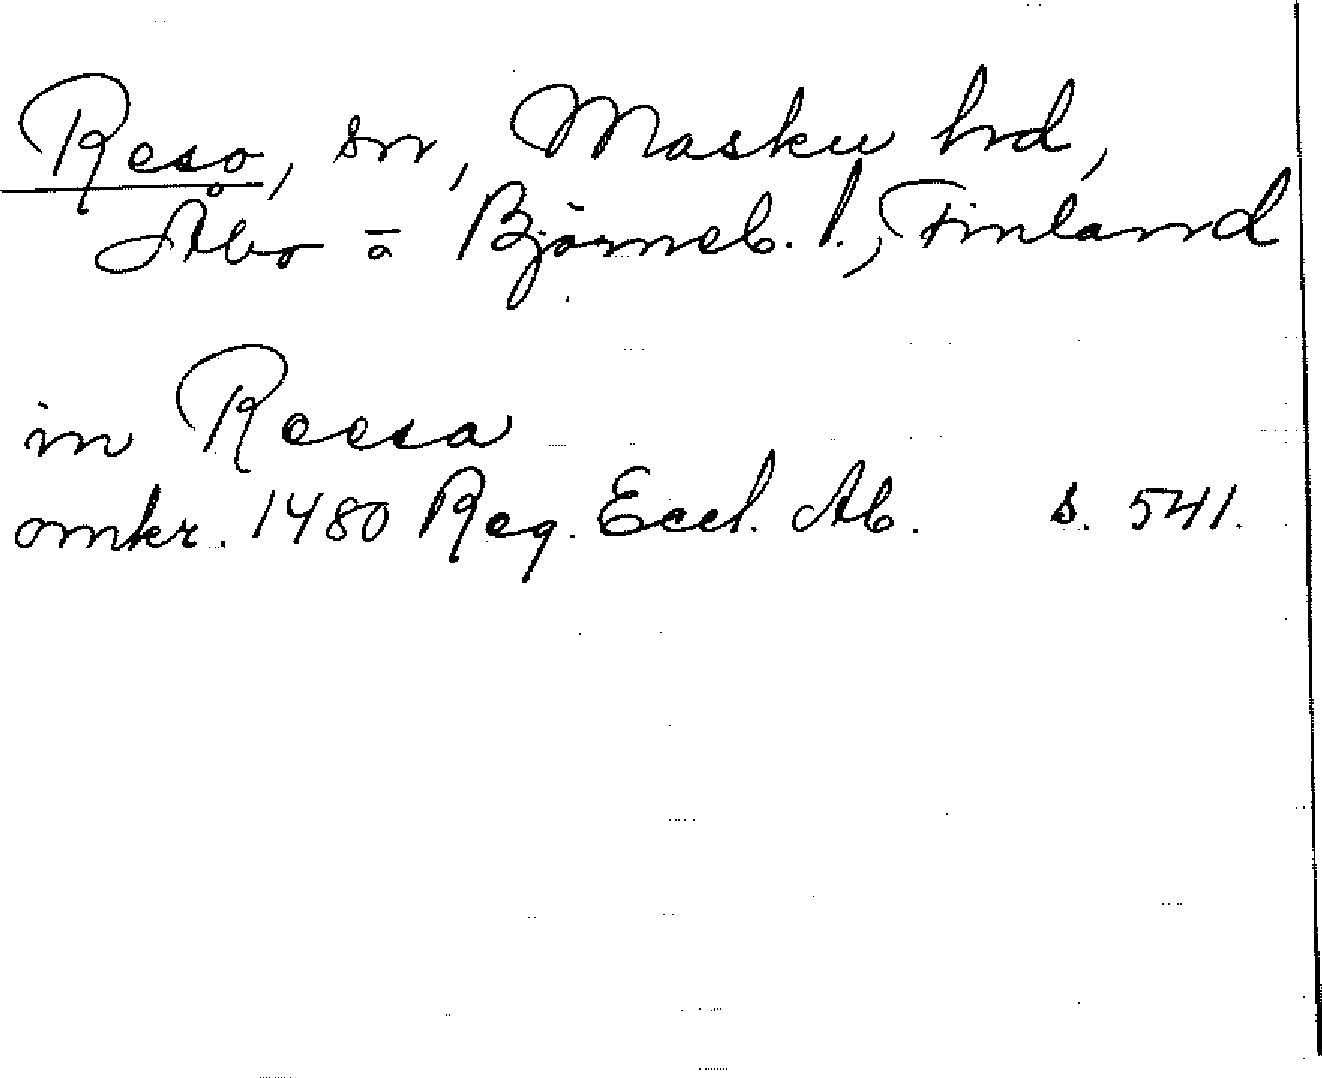 Reso, sn, Masku hd,
Åbo o Björneb. l., Finland
in Reesa
omkr. 1480 Reg. Eccl. Ab. s. 541.